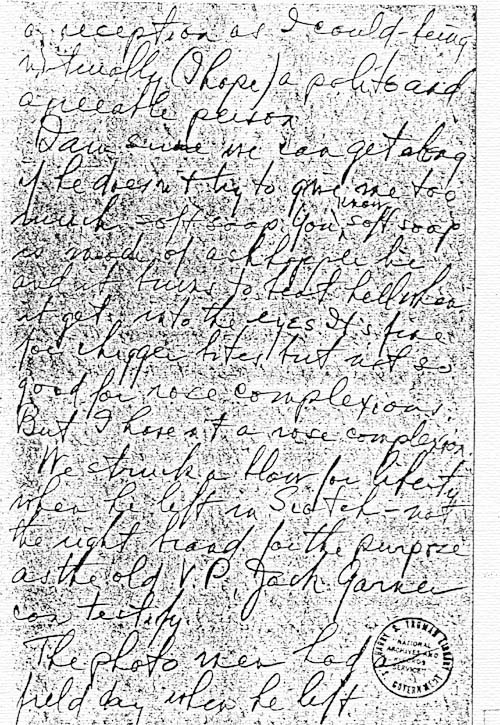 a reception as I could – being
naturally (I hope) a polite and
agreeable person.
I am sure we can get along
if he doesn't try to give me too
much soft soap. You know, soft soap
is made of ash hopper lye
and it burns to beat hell when
it gets into the eyes. It's fine
for chigger bites but not so
good for rose complexions.
But I haven't a rose complexion.
We struck a blow for liberty
when he left in Scotch – not
the right brand for the purpose
as the old V.P., Jack Garner
can testify.
The photo men had a
field day when he left
HARRY S. TRUMAN LIBRARY
NATIONAL
ARCHIVES AND
RECORDS
SERVICE
U.S. GOVERNMENT